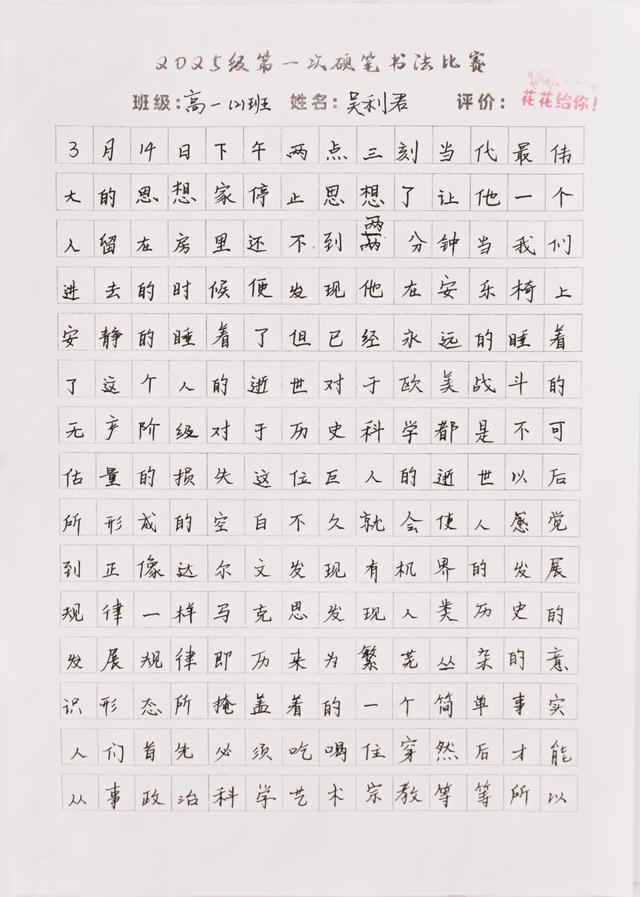 2025级第一次硬笔书法比赛
班级:高一(2)班 姓名:吴利君 评价: 花花给你!
3月14日下午两点三刻当代最伟
大的思想家停止思想了让他一个
人留在房里还不到两分钟当我们
进去的时候便发现他在安乐椅上
安静的睡着了但已经永远的睡着
了这个人的逝世对于欧美战斗的
无产阶级对于历史科学都是不可
估量的损失这位巨人的逝世以后
所形成的空白不久就会使人感觉
到正像达尔文发现有机界的发展
规律一样马克思发现人类历史的
发展规律即历来为繁芜丛杂的意
识形态所掩盖着的一个简单事实
人们首先必须吃喝住穿然后才能
从事政治科学艺术宗教等等所以